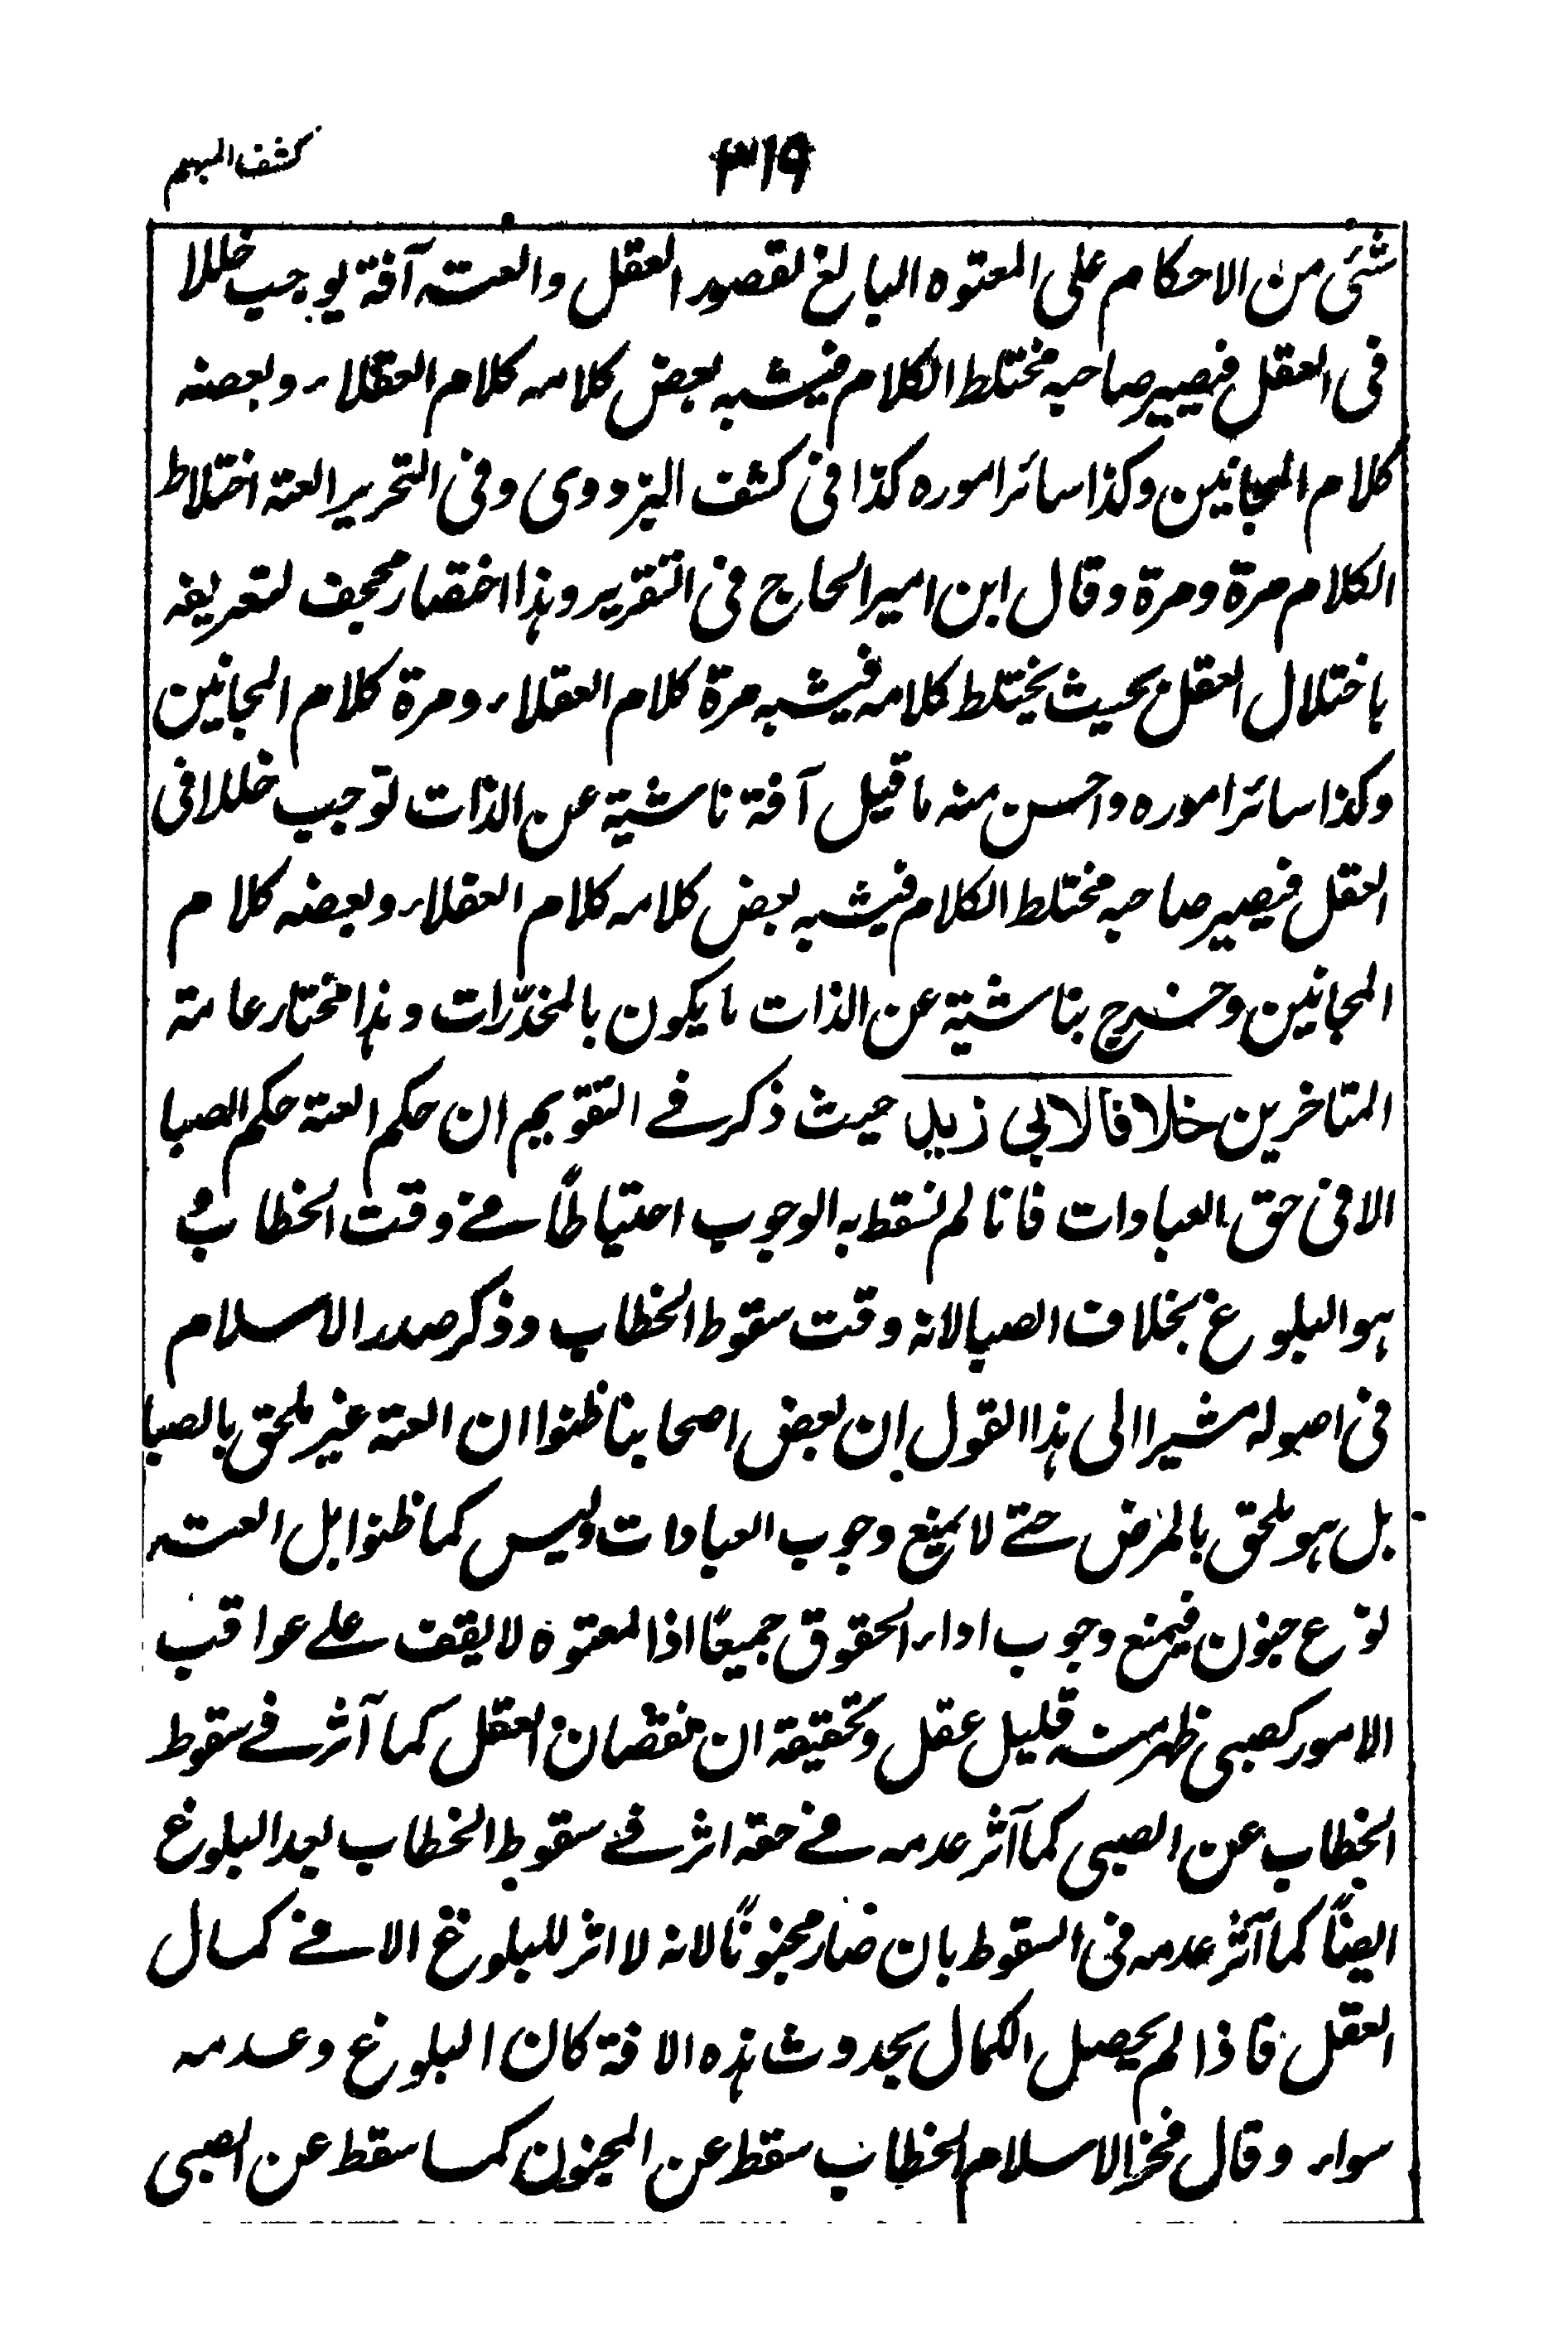 كشف المبهم
٣١٩
شئى من الاحكام على المعتوه البالغ لقصور العقل والعته آفة يوجب خللا
فى العقل فيصير صاحبه مختلط الكلام فيشبه بعض كلامه كلام العقلاء وبعضه
كلام المجانين وكذا سائر اموره كذا فى كشف البزدوى وفى التحرير العته اختلاط
الكلام مرة ومرة وقال ابن امير الحاج فى التقرير وهذا اختصار مجحف لتعريفه
باختلال العقل بحيث يختلط كلامه فيشبه مرة كلام العقلاء ومرة كلام المجانين
وكذا سائر اموره واحسن منه ما قيل آفة ناشية عن الذات توجب خللا فى
العقل فيصير صاحبه مختلط الكلام فيشبه بعض كلامه كلام العقلاء وبعضه كلام
المجانين وخرج بناشية عن الذات ما يكون بالمخدّرات وهذا مختار عامة
المتاخرين خلافا لابى زيد حيث ذكر فے التقويم ان حكم العته حكم الصبا
الا فى حق العبادات فانا لم نسقط به الوجوب احتياطاً فے وقت الخطاب و
هو البلوغ بخلاف الصبا لانه وقت سقوط الخطاب وذكر صدر الاسلام
فى اصوله مشيرا الى هذا القول ان بعض اصحابنا ظنوا ان العته غير ملحق بالصبا
بل هو ملحق بالمرض حتے لا يمنع وجوب العبادات وليس كما ظنوا بل العته
نوع جنون فيمنع وجوب اداء الحقوق جميعاً اذا المعتوه لا يقف علے عواقب
الامور كصبى ظهرت قليل عقل وتحقيقه ان نقصان العقل كما آثر فے سقوط
الخطاب عن الصبى كما آثر عدمه فے حقه اثر فے سقوط الخطاب بعد البلوغ
ايضاً كما آثر عدمه فى السقوط بان صار مجنوناً لانه لا اثر للبلوغ الا فے كمال
العقل فاذا لم يحصل الكمال بحدوث هذه الافة كان البلوغ وعدمه
سواء وقال فخر الاسلام الخطاب سقط عن المجنون كما سقط عن الصبى